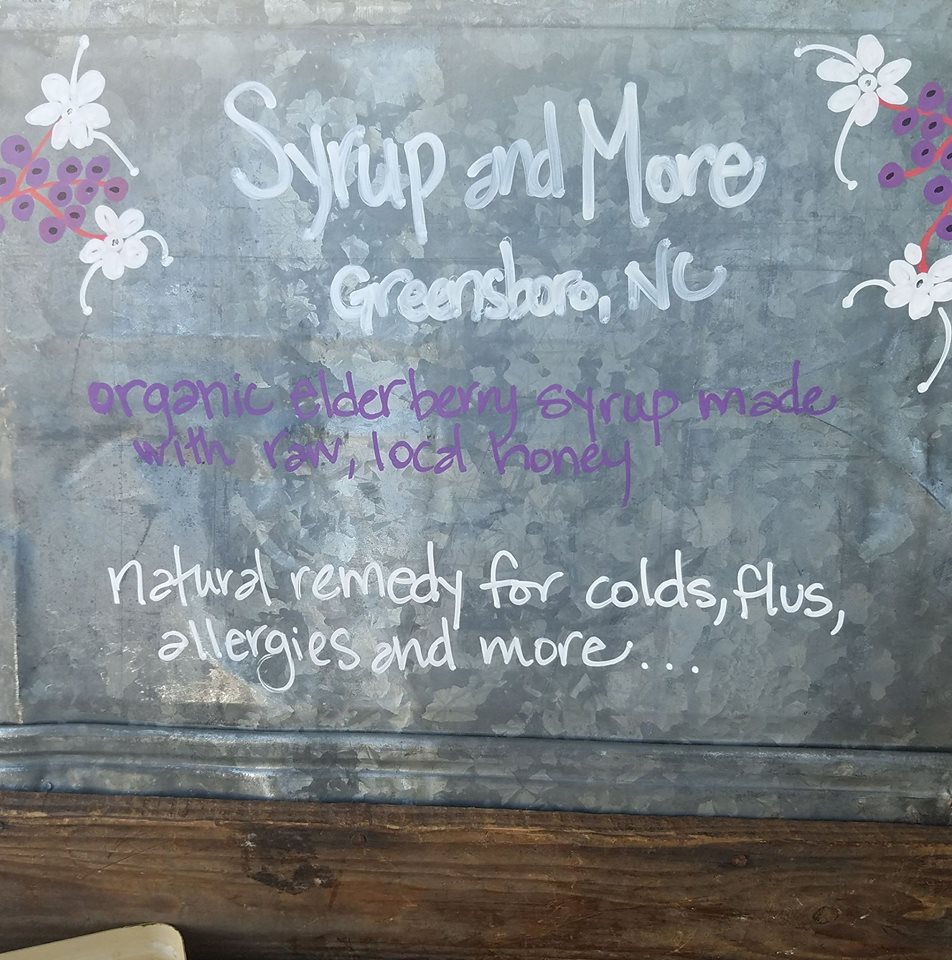 Syrup and More
Greensboro, NC
organic elderberry syrup made
with raw, local honey
natural remedy for colds, flus,
allergies and more...